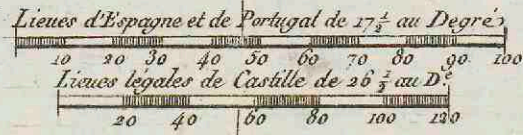 Lieues d'Espagne et de Portugal de 17 1/2 au Degré
10 20 30 40 50 60 70 80 90 100
Lieues légales de Castille de 26 1/2 au D.é
20 40 60 80 100 120